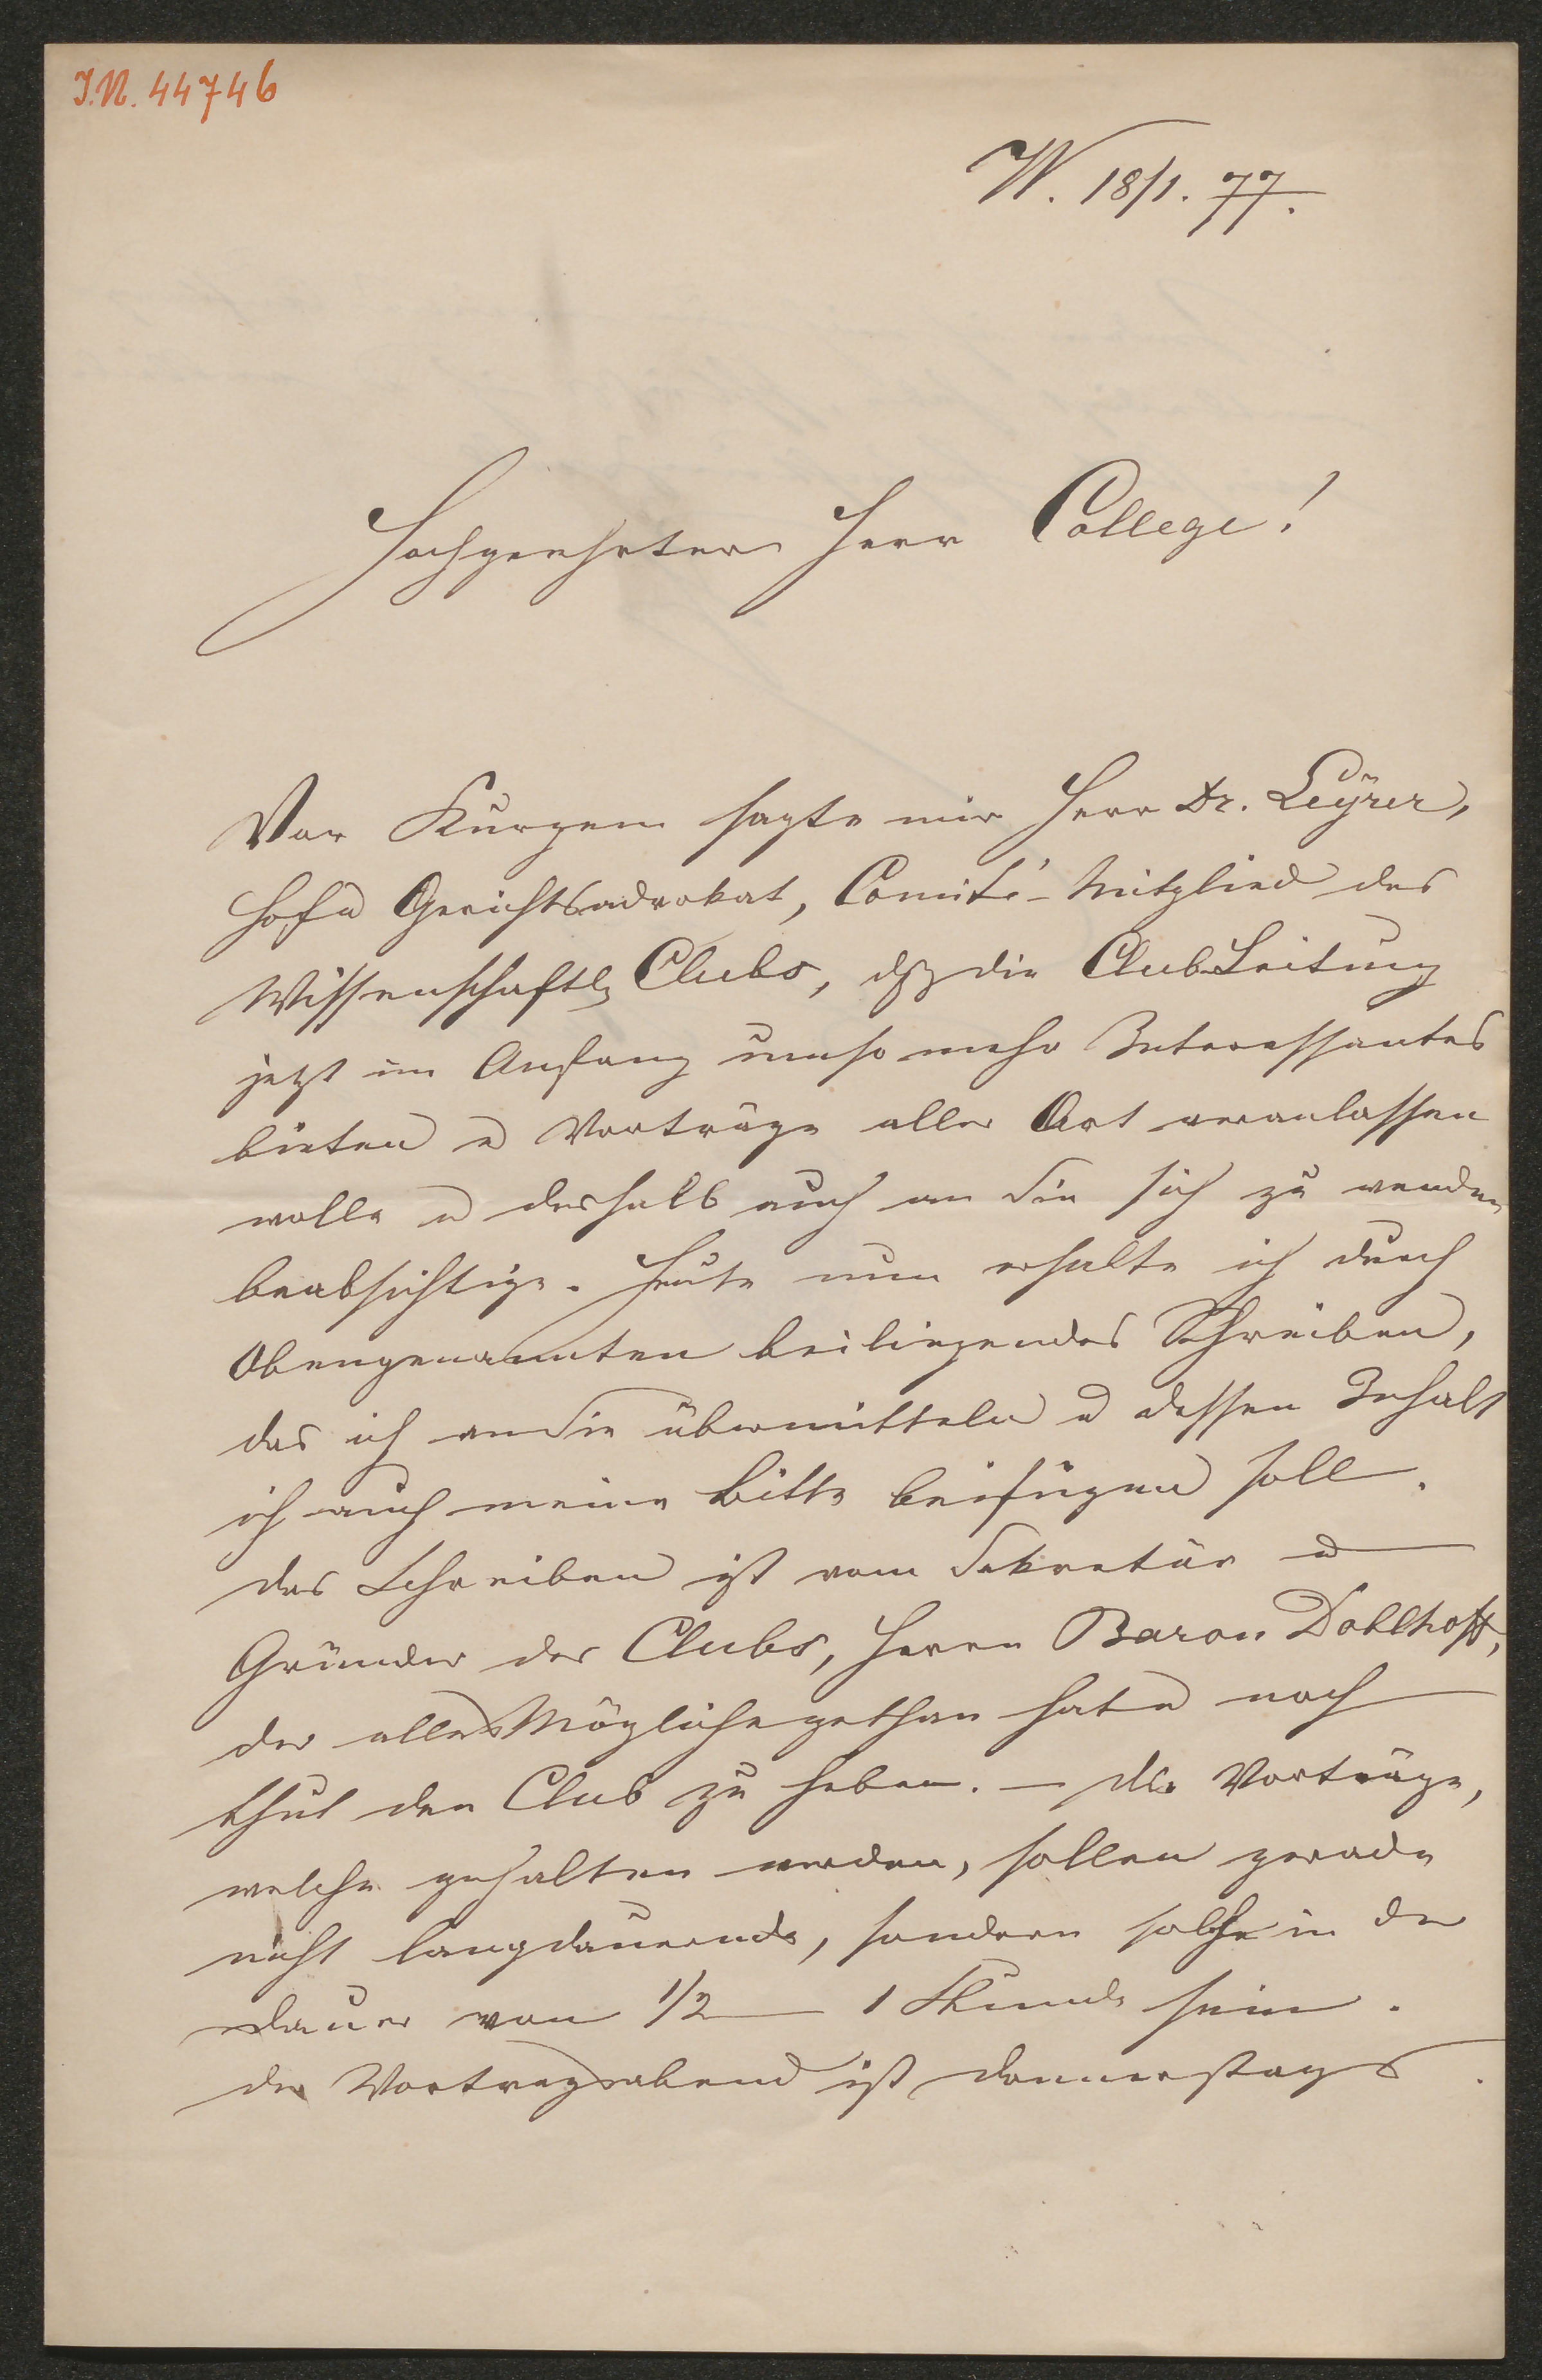 I.N. 44746
W. 18/1. 77.
Hochgeehrter Herr College!
Vor Kurzem sagte mir Herr Dr. Leyrer,
Hof u Gerichtsadvokat, Comité-Mitglied des
Wissenschaftl Clubs, dß die Club Leitung
jetzt im Anfang umso mehr Interessantes
bieten u Vorträge aller Art veranlassen
wolle u deshalb auch an Sie sich zu wenden
beabsichtige. Heute nun erhalte ich durch
Obengenannten beiliegendes Schreiben,
das ich an Sie übermitteln u dessen Inhalt
ich auch meine Bitte beifügen soll.
Das Schreiben ist vom Sekretär u
Gründer des Clubs, Herrn Baron Doblhoff,
der alles Mögliche gethan hat u noch
thut den Club zu heben. — Die Vorträge,
welche gehalten werden, sollen gerade
nicht langdauernde, sondern solche in der
Dauer von 1/2 — 1 Stunde sein.
Der Vortragsabend ist Donnerstags.